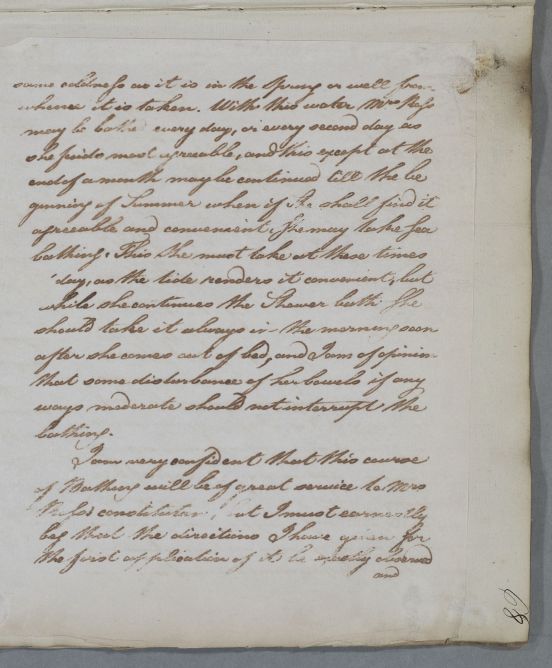 same coldness as it is in the Spring or well from
whence it is taken. With this water Mrs Ross
may be bathed every day, or every second day as
she finds most agreeable, and this except at the
end of a month may be continued till the be
ginning of Summer when if She shall find it
agreeable and convenient, She may take Sea
bathing. This She must take at these times
day, as the tide renders it convenient; but
while she continues the Shower bath She
should take it always in the morning soon
after she comes out of bed, and I am of opinion
that some disturbance of her bowels if any
ways moderate should not interrupt the
bathing.
I am very confident that this course
of Bathing will be of great service to Mrs
constitution, but I must earnestly
beg that the directions I have given for
the first application of it be exactly observed
and
89